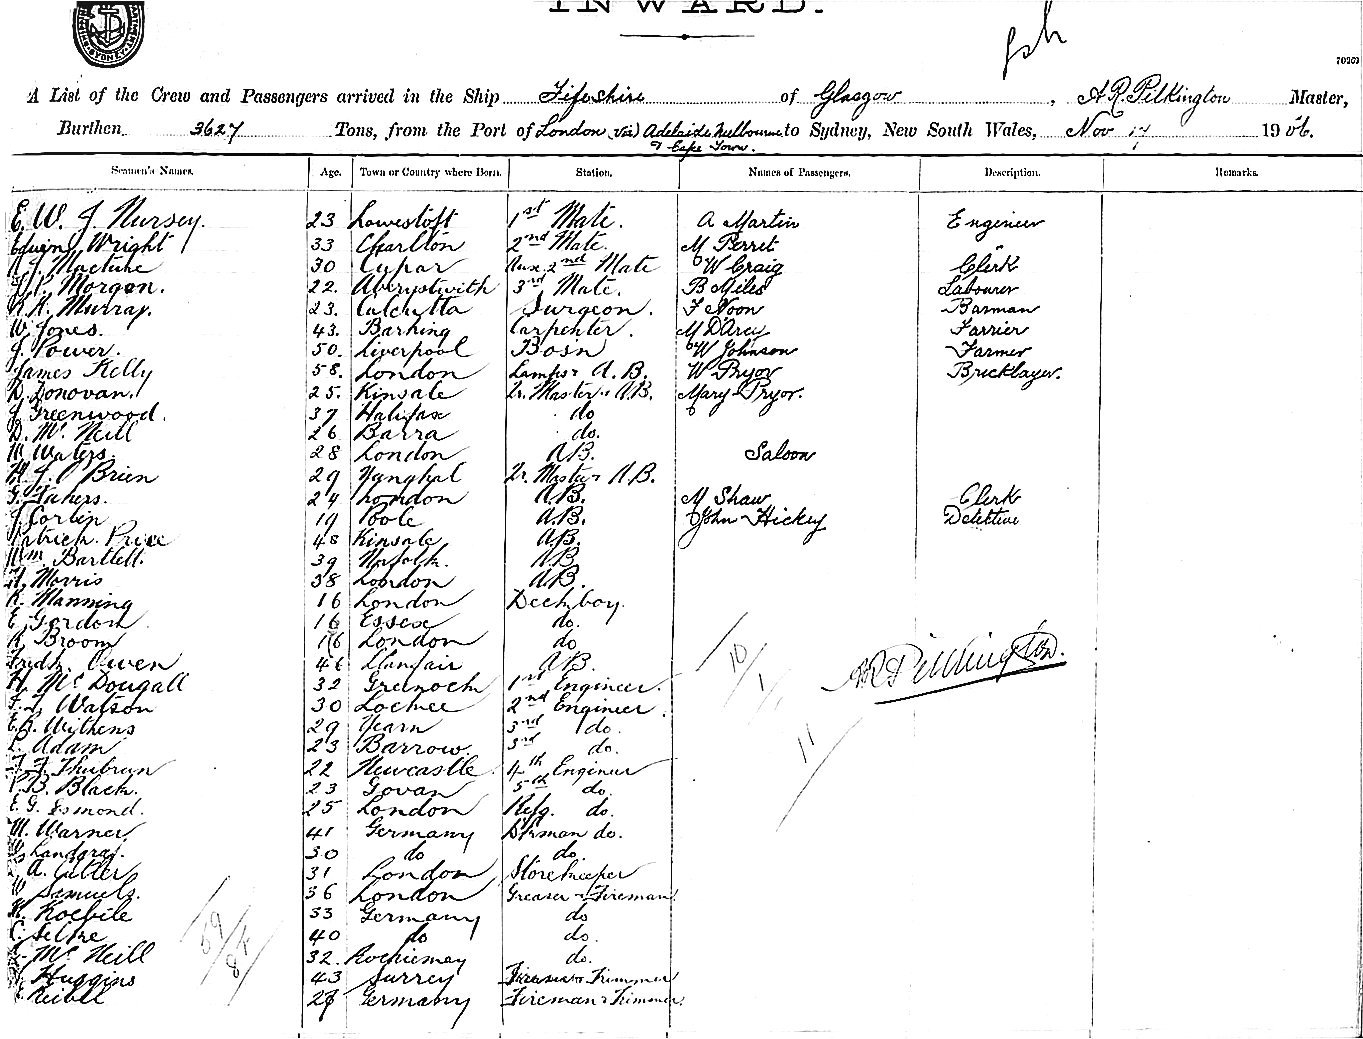 INWARD.
70202
A List of the Crew and Passengers arrived in the Ship Fifeshire of Glasgow, A R. Pilkington Master,
Burthen 3627 Tons, from the Port of London, via Adelaide, Melbourne to Sydney, New South Wales, Nov 17 1906.
& Cape Town.
Seamen's Names. Age. Town or Country where Born. Station. Names of Passengers. Description. Remarks.
E. W. J. Nursey. 23 Lowestoft 1st Mate. A Martin Engineer
Wright 33 Charlton 2nd Mate. M Perret
30 Cupar Aux. 2nd Mate W Craig Clerk
P. Morgan. 22. Aberystwith 3rd Mate. B Miles Labourer
Murray. 23. Calcutta Surgeon. F Noon Barman
W Jones. 43. Barking Carpenter. M D'Arcy Farrier
J. Power. 50. Liverpool Bosn W Johnson Farmer
James Kelly 58. London Lamps & A.B. W Pryor Bricklayer.
D. Donovan. 25. Kinsale Qr. Master & A.B. Mary Pryor.
J Greenwood. 37 Halifax do
D. McNeill 26 Barra do.
Waters. 28 London A.B. Saloon
J. O'Brien 29 Yanghal Qr. Master & A.B.
24 London A.B. M Shaw Clerk
J Corbin 19 Poole A.B. John Hickey Detective
Patrick Price 48 Kinsale A.B.
Wm. Bartlett. 39 Norfolk. A.B.
Morris 38 London A.B.
R. Manning 16 London Deck boy.
E. Gordon 16 Essex do.
R Broom 16 London do
Fredk. Owen 46 Llanfair A.B.
H. McDougall 32 Greenock 1st Engineer.
Watson 30 Lochee 2nd Engineer.
E. R. Withens 29 Yearn 3rd do.
Adam 23 Barrow. 3rd do.
22 Newcastle 4th Engineer
B. Black. 23 Govan 5th do.
E. G. Esmond. 25 London Refg. do.
M. Warner 41 Germany do.
Landgraf. 30 do do.
A. Cutler 31 London Storekeeper
W Samuels. 36 London Greaser & Fireman
Koebile 33 Germany do
C. Selke 40 do do.
McNeill 32. do.
Huggins 43 Surrey Fireman & Trimmer
Germany Fireman & Trimmer
10/1
AR Pilkington.
11
59/84